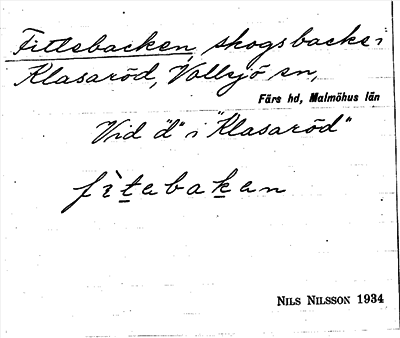 Fittebacken, skogsbacke i
Klasaröd, Vallsjö sn,
Färs hd, Malmöhus län
Vid "d" i "Klasaröd"
fìtebaken
NILS NILSSON 1934